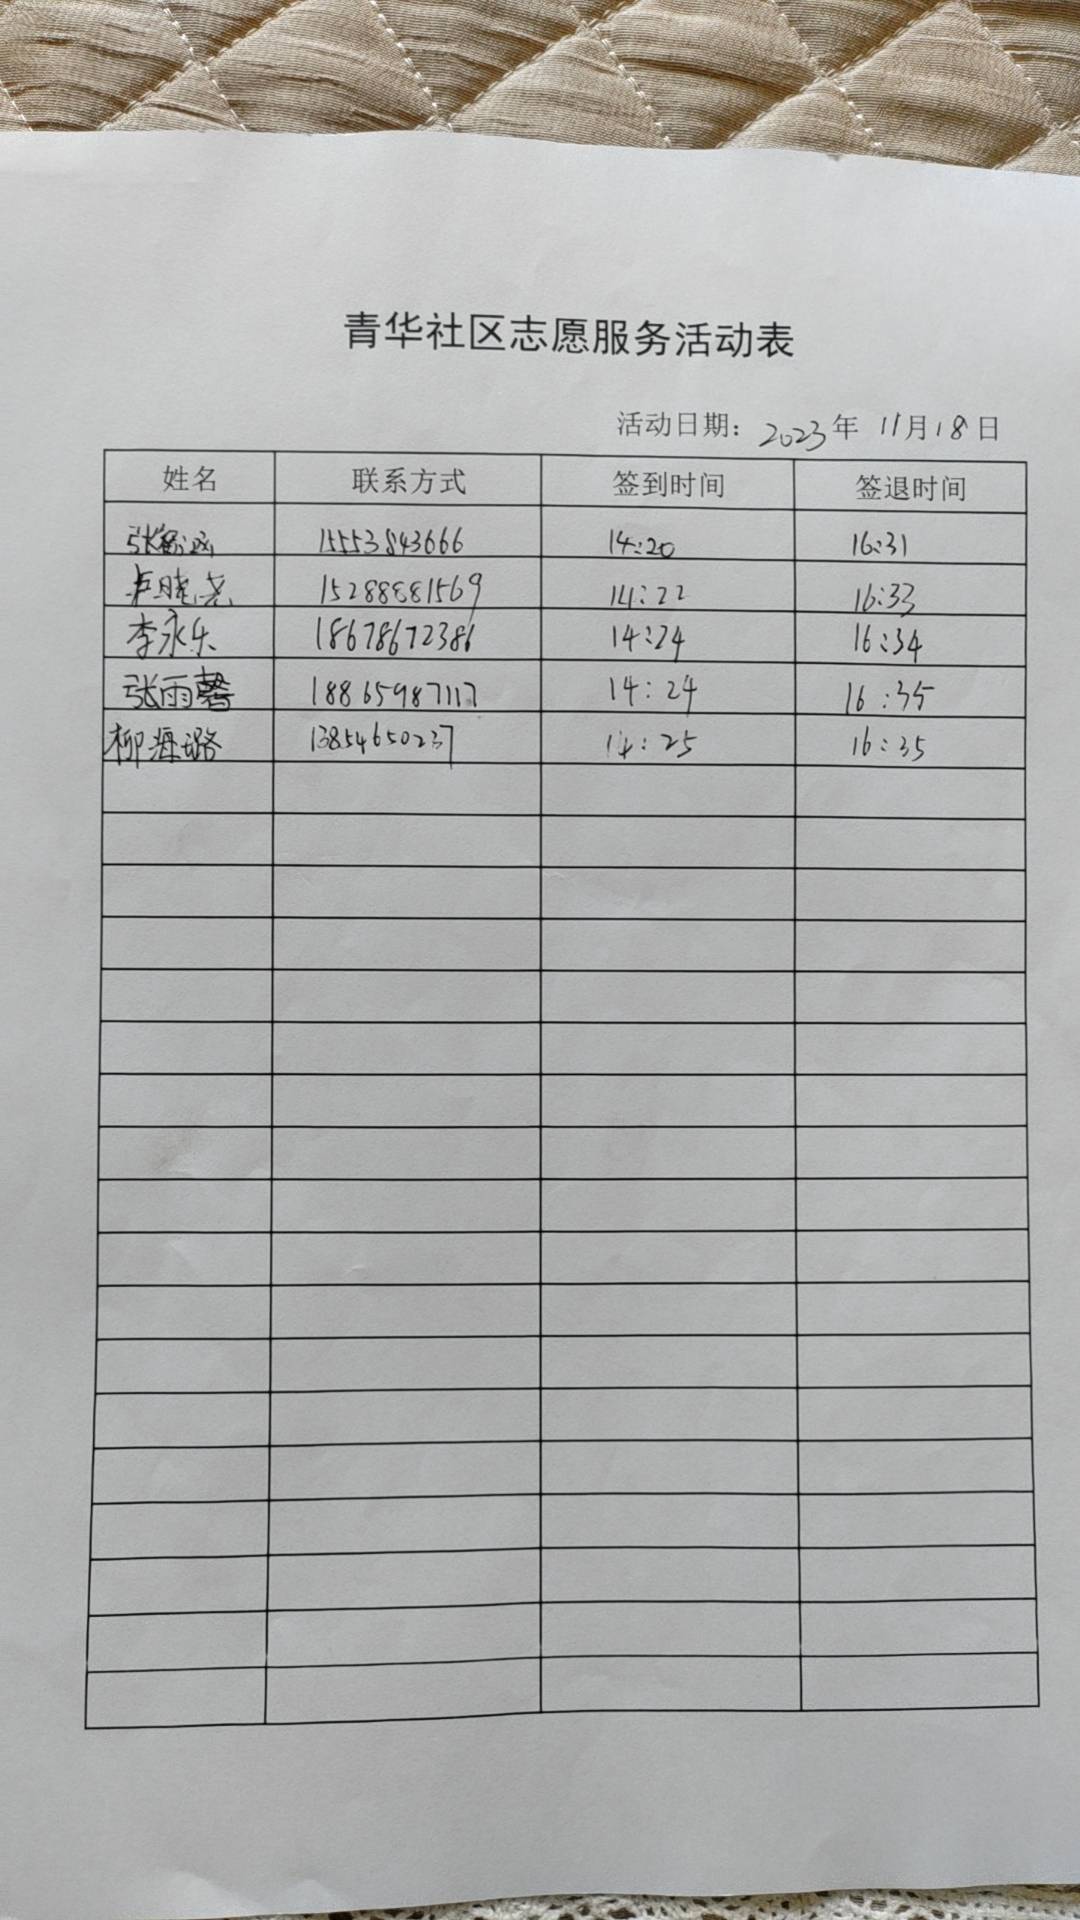 青华社区志愿服务活动表
活动日期：2023年 11月18日
姓名 联系方式 签到时间 签退时间
张 15553843666 14:20 16:31
卢晓尧 15288881569 14:22 16:33
李永乐 18678672386 14:24 16:34
张雨馨 18865987117 14:24 16:35
柳海璐 13854650237 14:25 16:35